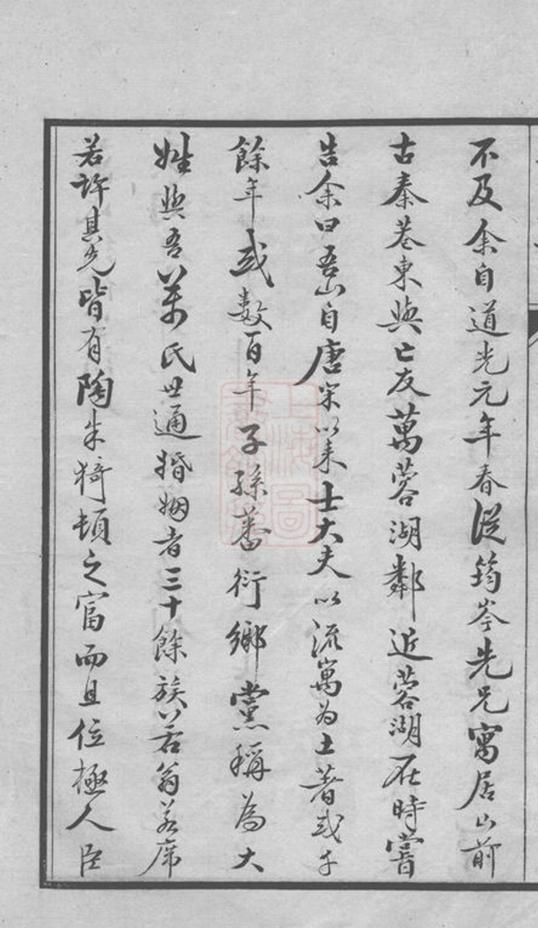 不及余自道光元年春從筠岑先兄寓居山前
古秦巷東與亡友萬蓉湖鄰近蓉湖在時嘗
告余曰吾山自唐宋以来士大夫以流寓为土著或千
餘年或數百年子孫蕃衍鄉黨稱為大
姓與吾萬氏世通婚姻者三十餘族若翁若席
若許其先皆有陶朱猗頓之富而且位極人臣
上海圖